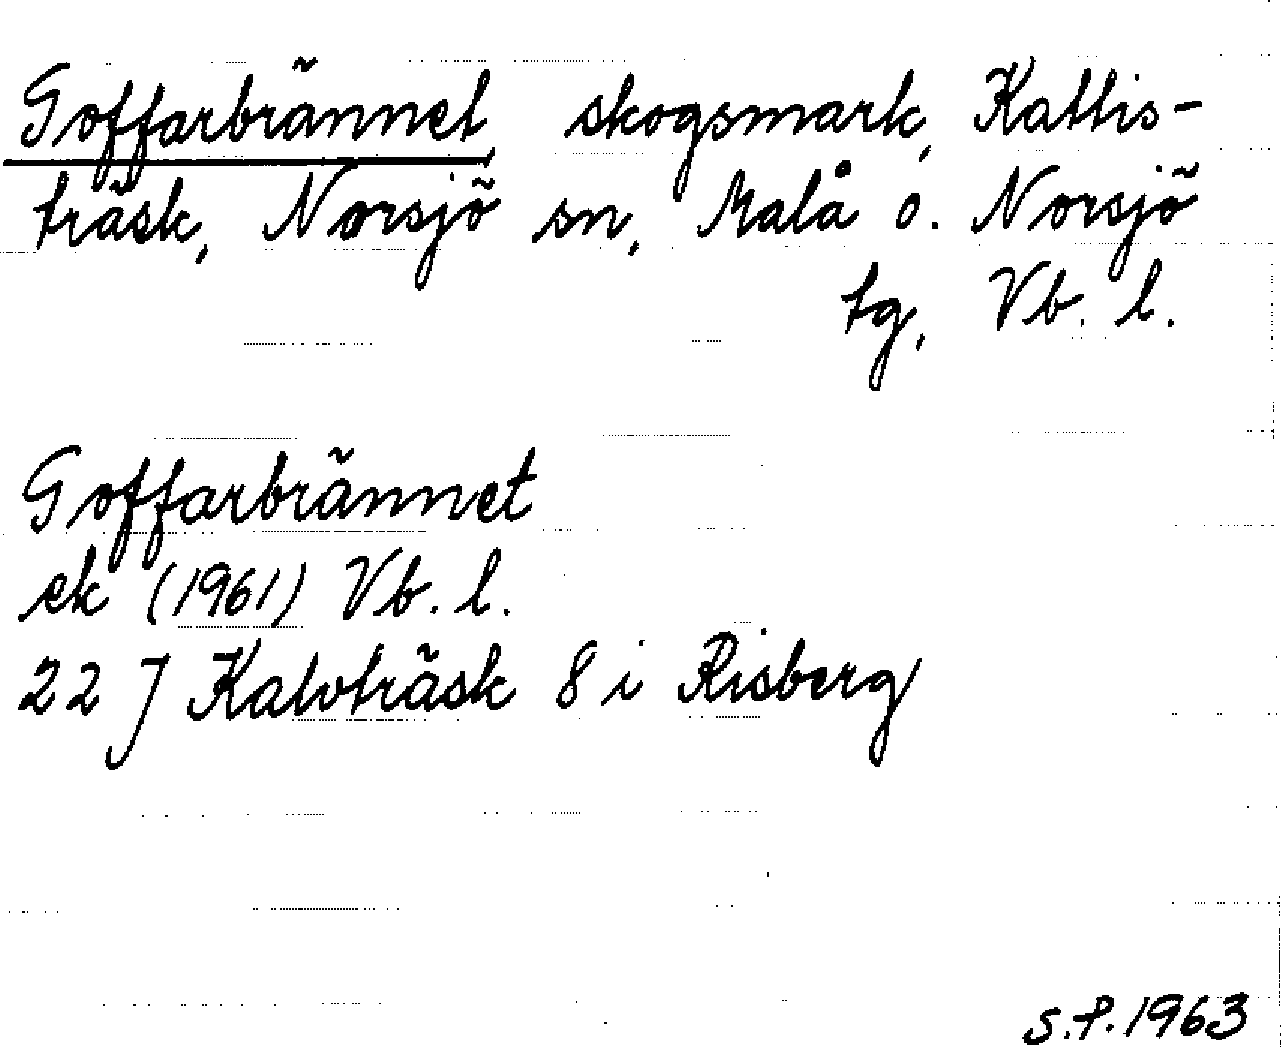 Goffarbrännet, skogsmark, Kattis-
träsk, Norsjö sn, Malå o. Norsjö
tg, Vb. l.
Goffarbrännet
ek (1961) Vb. l.
22 J Kalvträsk 8 i Risberg
s.f. 1963